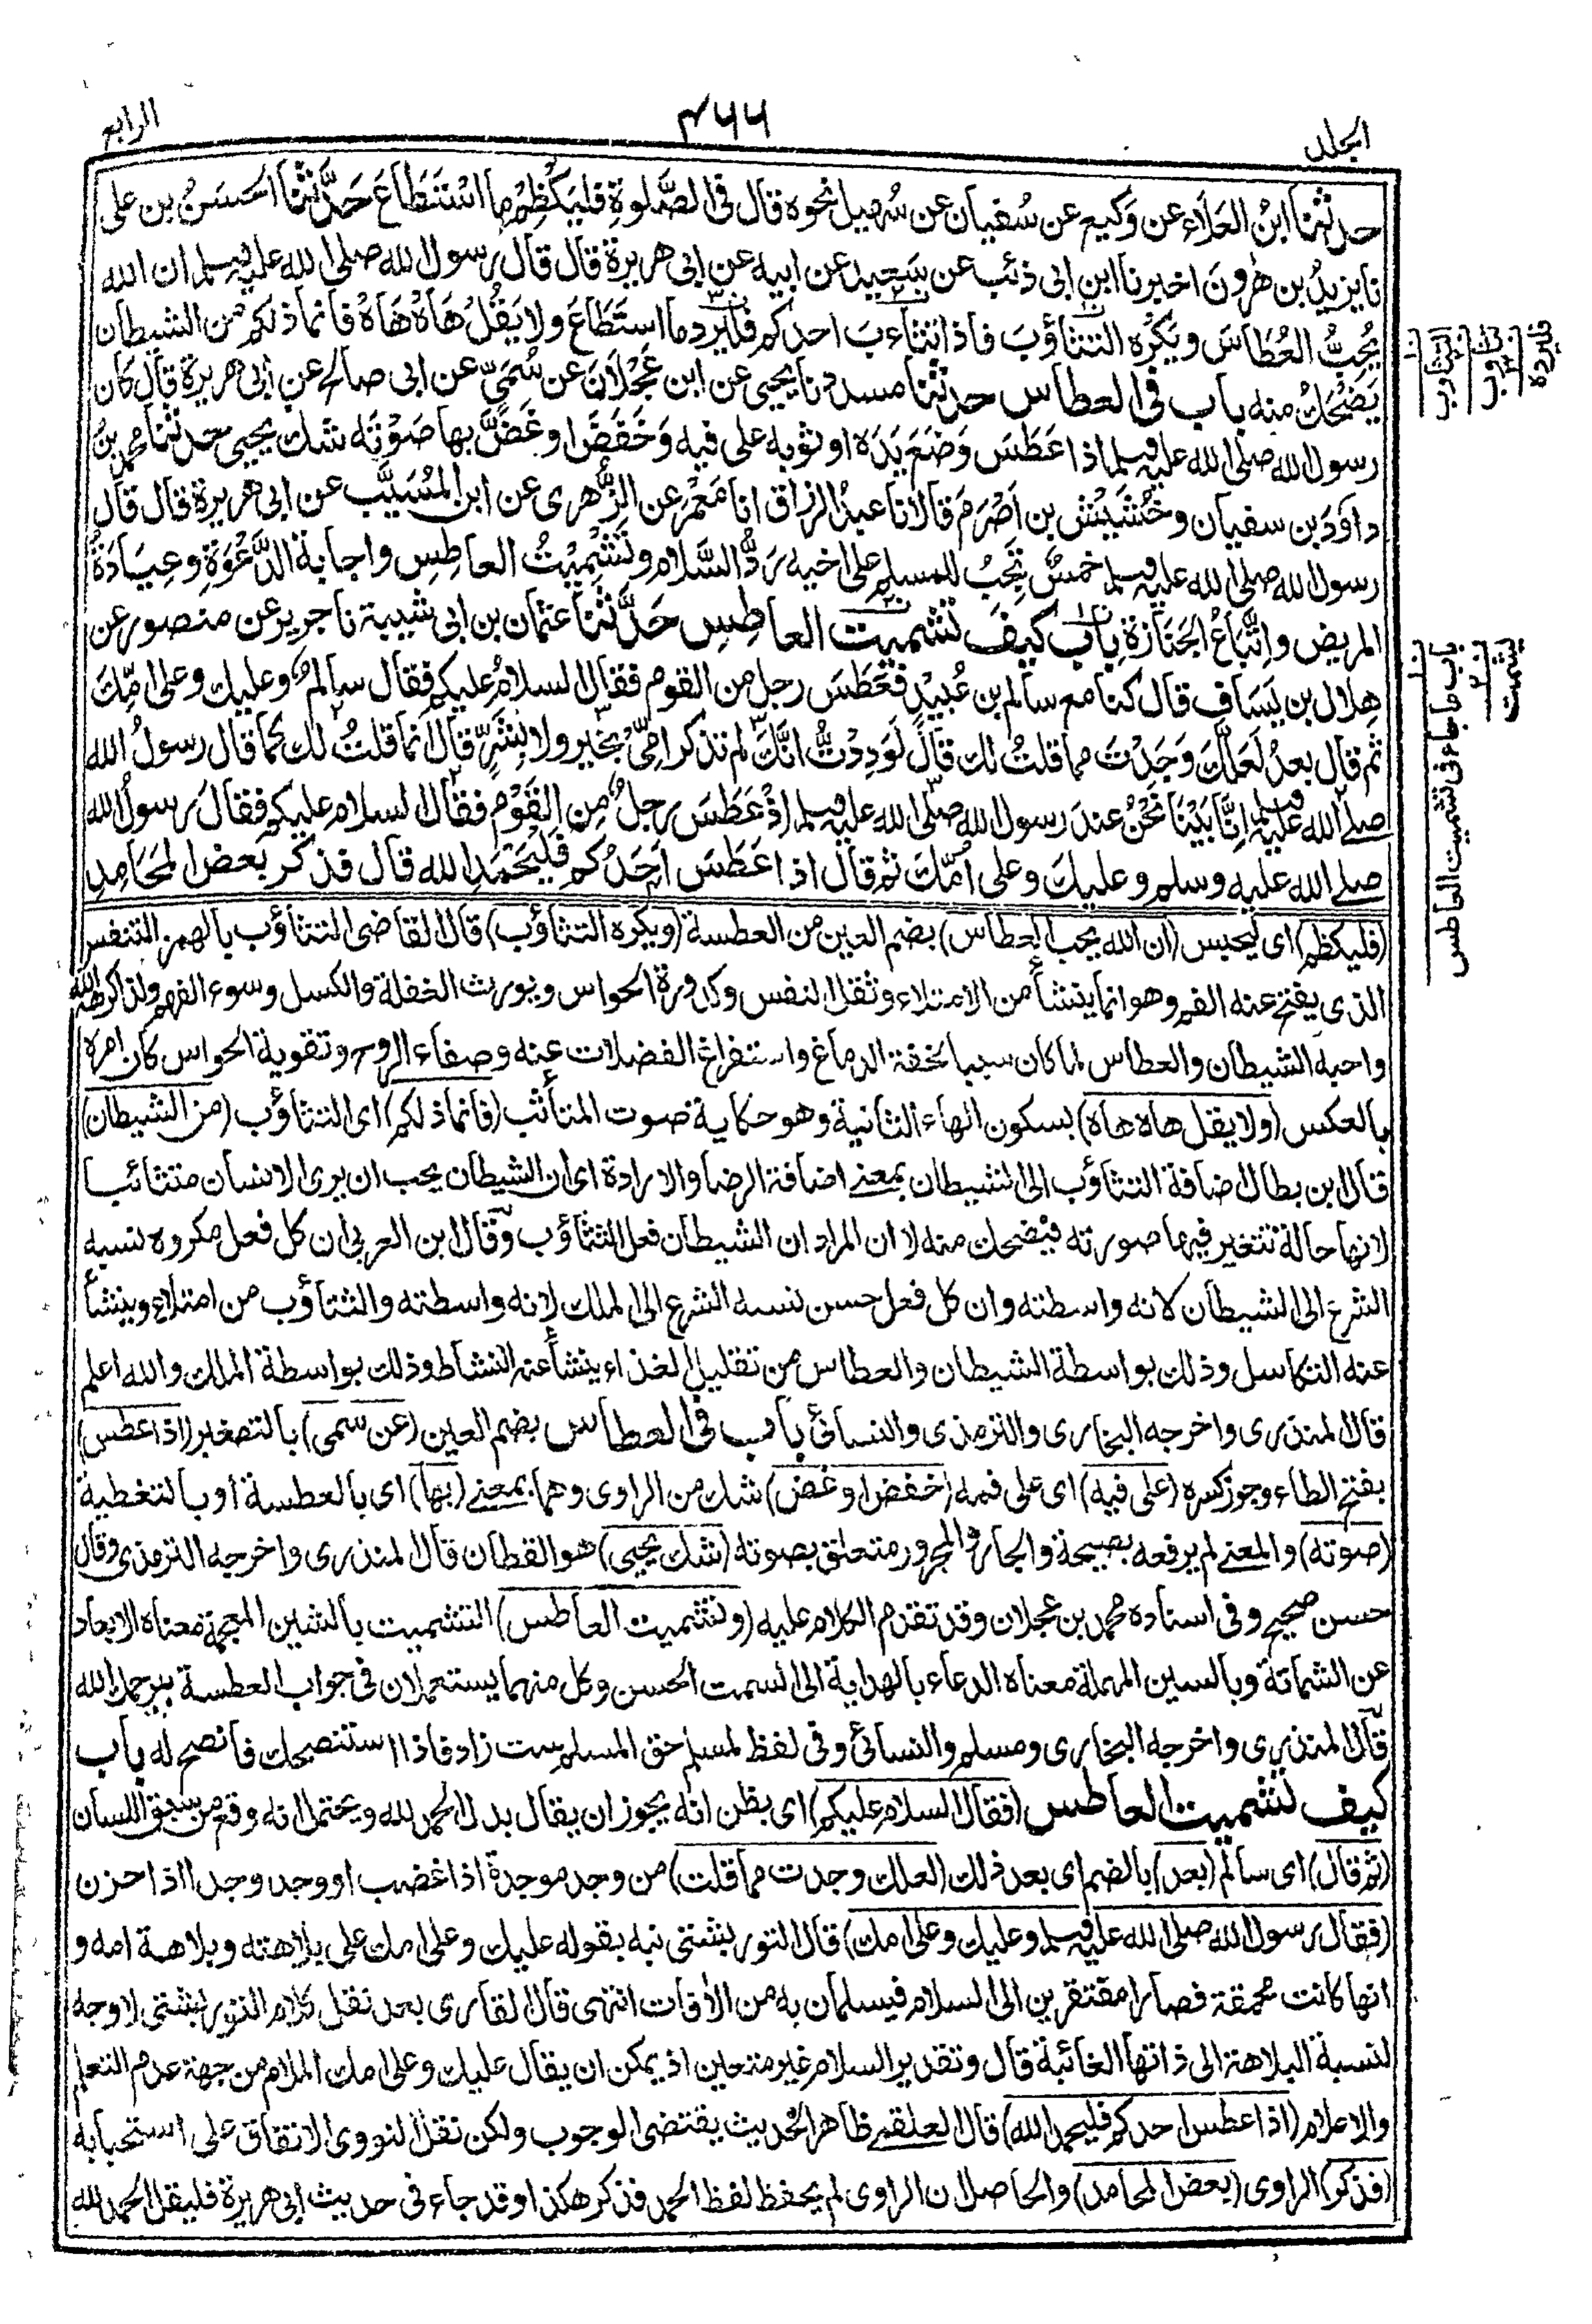 المجلد
٤٦٦
الرابع
حدثنا ابنُ العَلَاء عن وَكيع عن سُفيان عن سُهيل نحوه قال فى الصَّلوةِ فليَكْظِمْ ما اسْتَطَاعَ حَدَّثنا الحَسَنُ بن على
نا يزيدُ بن هٰرونَ اخبرنا ابن ابى ذئب عن سَعيد عن ابيه عن ابى هريرة قال قال رسول الله صلى الله عليه وسلم ان الله
يُحِبُّ العُطَاسَ ويَكْرَه التثَاؤُبَ فاذا تثَاءَبَ احدكم فليَرد ما استَطَاعَ ولا يَقُلْ هَاهْ هَاهْ فانما ذلكم من الشيطان
يَضْحَكُ منه باب فى العطاس حدثنا مسدد نا يحيى عن ابن عَجْلَانَ عن سُمَىّ عن ابى صالح عن ابى هريرة قال كان
رسول الله صلى الله عليه وسلم اذا عَطَسَ وَضَعَ يَدَهُ او ثوبه على فيه وَخَفَضَ او غَضَّ بها صَوْتَه شك يحيى حدثنا محمد بنُ
داوٗدَ بن سفيان وخُشَيْشُ بن اَصْرَمَ قالا نا عبدُ الرزاق انا مَعْمَرٌ عن الزُّهرى عن ابن المُسَيَّب عن ابى هريرة قال قال
رسول الله صلى الله عليه وسلم خمسٌ تَجِبُ للمسلم على اخيه رَدُّ السَّلامِ وتَشْمِيْتُ العاطِسِ واجابةُ الدَّعْوَةِ وعِيَادَةُ
المريض واتِّبَاعُ الجَنَازَةِ باب كيفَ تشميت العاطِسِ حَدَّثنا عثمان بن ابى شيبة نا جرير عن منصور عن
هِلال بن يَسَافٍ قال كنا مع سالم بن عُبَيْدٍ فعَطَسَ رجل من القوم فقال السلامُ عليكم فقال سالمٌ وعليك وعلى امّك
ثم قال بعدُ لَعَلَّكَ وَجَدْتَ مما قلتُ لك قال لَوَدِدْتُ انَّكَ لم تذكر امِّىْ بخيرٍ ولا بِشَرٍّ قال انما قلتُ لك كما قال رسولُ الله
صلے الله عليه وسلم اِنَّا بَيْنَا نَحْنُ عندَ رسول الله صلى الله عليه وسلم اِذْ عَطَسَ رجلٌ من القَوْم فقال السلام عليكم فقال رسول الله
صلے الله عليه وسلم وعليكَ وعلى امِّكَ ثم قال اذا عَطَسَ اَحَدُكم فَلْيَحْمَدِ الله قال فذكر بَعضَ المَحَامِدِ
(فليكظم) اى ليحبس (ان الله يحب العطاس) بضم العين من العطسة (ويكره التثاؤب) قال القاضى التثاؤب بالهمز التنفس
الذى يفتح عنه الفم وهو انما ينشأ من الامتلاء وثقل النفس وكدورة الحواس ويورث الغفلة والكسل وسوء الفهم ولذا كرهه الله
واحبه الشيطان والعطاس لما كان سببا لخفة الدماغ واستفراغ الفضلات عنه وصفاء الروح وتقوية الحواس كان امره
بالعكس (ولا يقل هاه هاه) بسكون الهاء الثانية وهو حكاية صوت المتأثب (فانما ذلكم) اى التثاؤب (من الشيطان)
قال ابن بطال اضافة التثاؤب الى الشيطان بمعنے اضافة الرضا والارادة اى ان الشيطان يحب ان يرى الانسان متثائبا
لانها حالة تتغير فيها صورته فيضحك منه لا ان المراد ان الشيطان فعل التثاؤب وقال ابن العربى ان كل فعل مكروه نسبه
الشرع الى الشيطان لانه واسطته وان كل فعل حسن نسبه الشرع الى الملك لانه واسطته والتثاؤب من امتلاء وينشأ
عنه التكاسل وذلك بواسطة الشيطان والعطاس من تقليل الغذاء ينشأ عنه النشاط وذلك بواسطة الملك والله اعلم
قال المنذرى واخرجه البخارى والترمذى والنسائى باب فى العطاس بضم العين (عن سمى) بالتصغير (اذا عطس)
بفتح الطاء وجوز كسره (على فيه) اى على فمه (خفض او غض) شك من الراوى وهما بمعنے (بها) اى بالعطسة او بالتغطية
(صوته) والمعنے لم يرفعه بصيحة والجار والمجرور متعلق بصوته (شك يحيى) هو القطان قال المنذرى واخرجه الترمذى وقال
حسن صحيح وفى اسناده محمد بن عجلان وقد تقدم الكلام عليه (وتشميت العاطس) التشميت بالشين المعجمة معناه الابعاد
عن الشماتة وبالسين المهملة معناه الدعاء بالهداية الى السمت الحسن وكل منهما يستعملان فى جواب العطسة بيرحمك الله
قال المنذرى واخرجه البخارى ومسلم والنسائى وفى لفظ لمسلم حق المسلم ست زاد فاذا استنصحك فانصح له باب
كيف تشميت العاطس (فقال السلام عليكم) اى يظن انه يجوز ان يقال بدل الحمد لله ويحتمل انه وقع من سبق اللسان
(ثم قال) اى سالم (بعد) بالضم اى بعد ذلك (لعلك وجدت مما قلت) من وجد موجدة اذا غضب او وجد وجدا اذا حزن
(فقال رسول الله صلى الله عليه وسلم وعليك وعلى امك) قال التوربشتى نبه بقوله عليك وعلى امك على بلاهته وبلاهة امه و
انها كانت محمقة فصارا مفتقرين الى السلام فيسلمان به من الأفات انتهى قال القارى بعد نقل كلام التوربشتى لا وجه
لنسبة البلاهة الى ذاتها الغائبة قال وتقدير السلام غير متعين اذ يمكن ان يقال عليك وعلى امك الملام من جهة عدم التعلم
والاعلام (اذا عطس احدكم فليحمد الله) قال العلقمے ظاهر الحديث يقتضى الوجوب ولكن نقل النووى الاتفاق على استحبابه
(فذكر) الراوى (بعض المحامد) والحاصل ان الراوى لم يحفظ لفظ الحمد فذكر هكذا وقد جاء فى حديث ابى هريرة فليقل الحمد لله
التثاوب
تثاوب
فليرده
باب ما جاء فى تشميت العاطس
يشمت